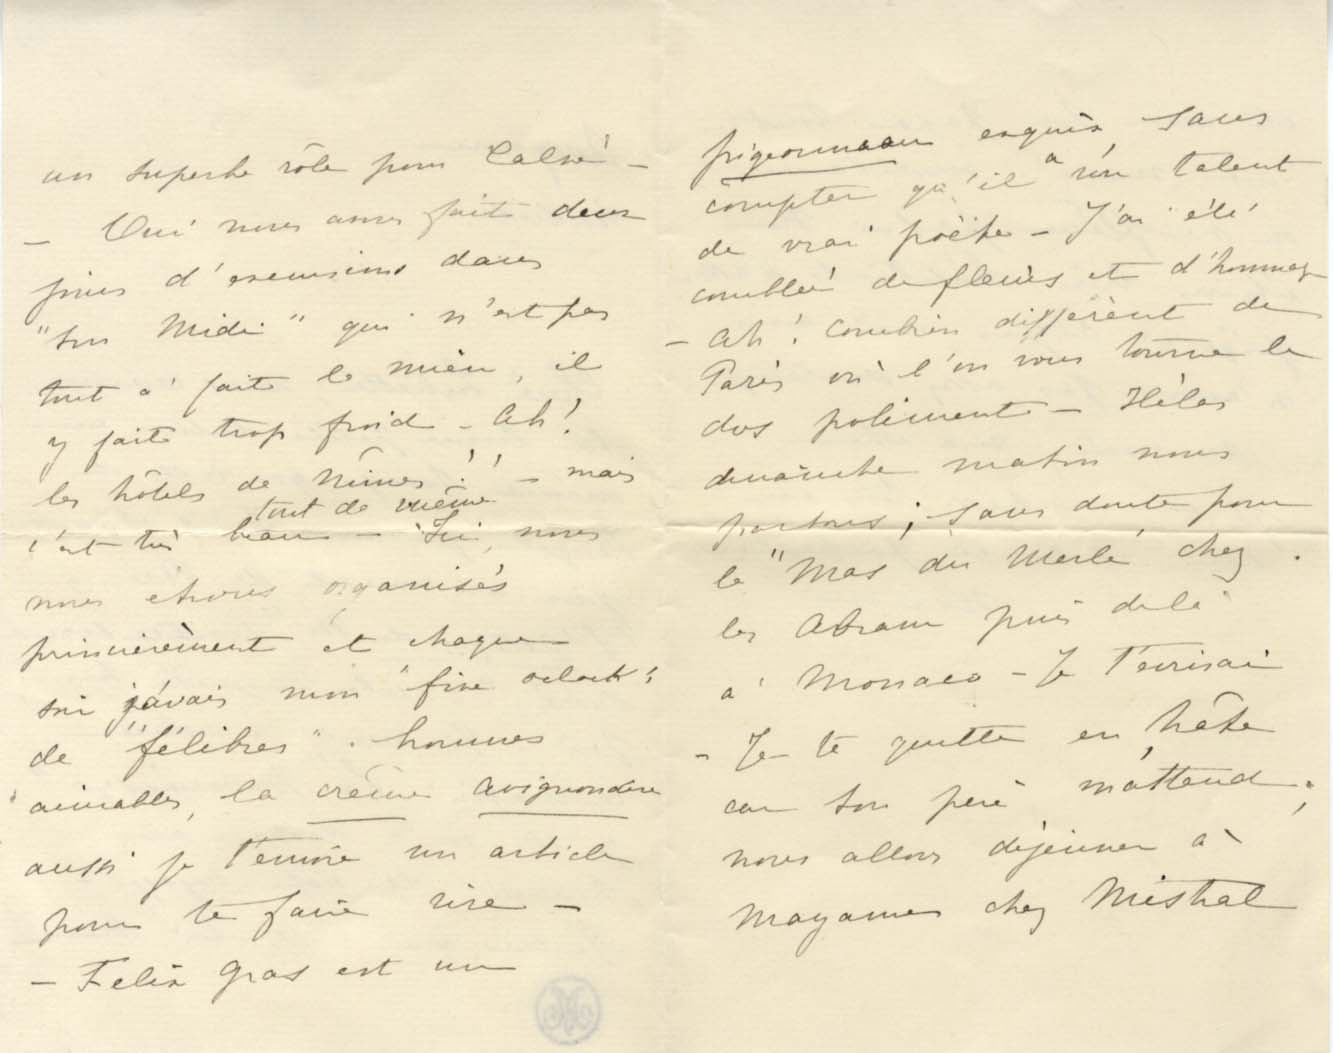 un superbe rôle pour Calvé –
– Oui nous avons fait deux
jours d'excursions dans
"son Midi" qui n'est pas
tout à fait le mien, il
y fait trop froid – Ah!
les hôtels de Nîmes!! – mais
c'est très beau tout de même – Ici, nous
nous étions organisés
princièrement et chaque
soir j'avais mon "five oclock"
de "félibres". hommes
aimables, la crème avignonnaise
aussi je t'envoie un article
pour te faire rire –
– Felix Gras est un
pigeonneau exquis, sans
compter qu'il a un talent
de vrai poëte – J'ai été
comblée de fleurs et d'hommages
– Ah! combien différent de
Paris où l'on vous tourne le
dos poliment – Hélas
dimanche matin nous
partons; sans doute pour
le "Mas du Merle" chez
les Abram puis de là
à Monaco – Je t'écrirai
– Je te quitte en hâte
car ton père m'attend;
nous allons déjeuner à
Mayanne chez Mistral